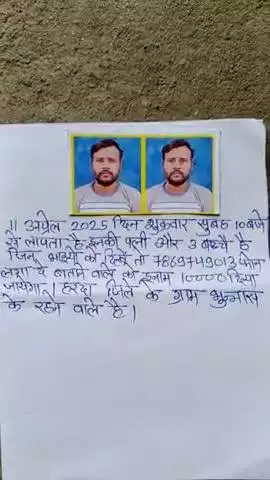 11 अप्रेल 2025 दिन शुक्रवार सुबह 10 बजे
से लापता है इनकी पत्नी और 3 बच्चे है
जिन भाइयो को दिखे तो 7869749013 फोन
लगा दे बताने वाले को इनाम 10000 दिया
जायेगा। हरदा जिले के ग्राम
के रहने वाले है।